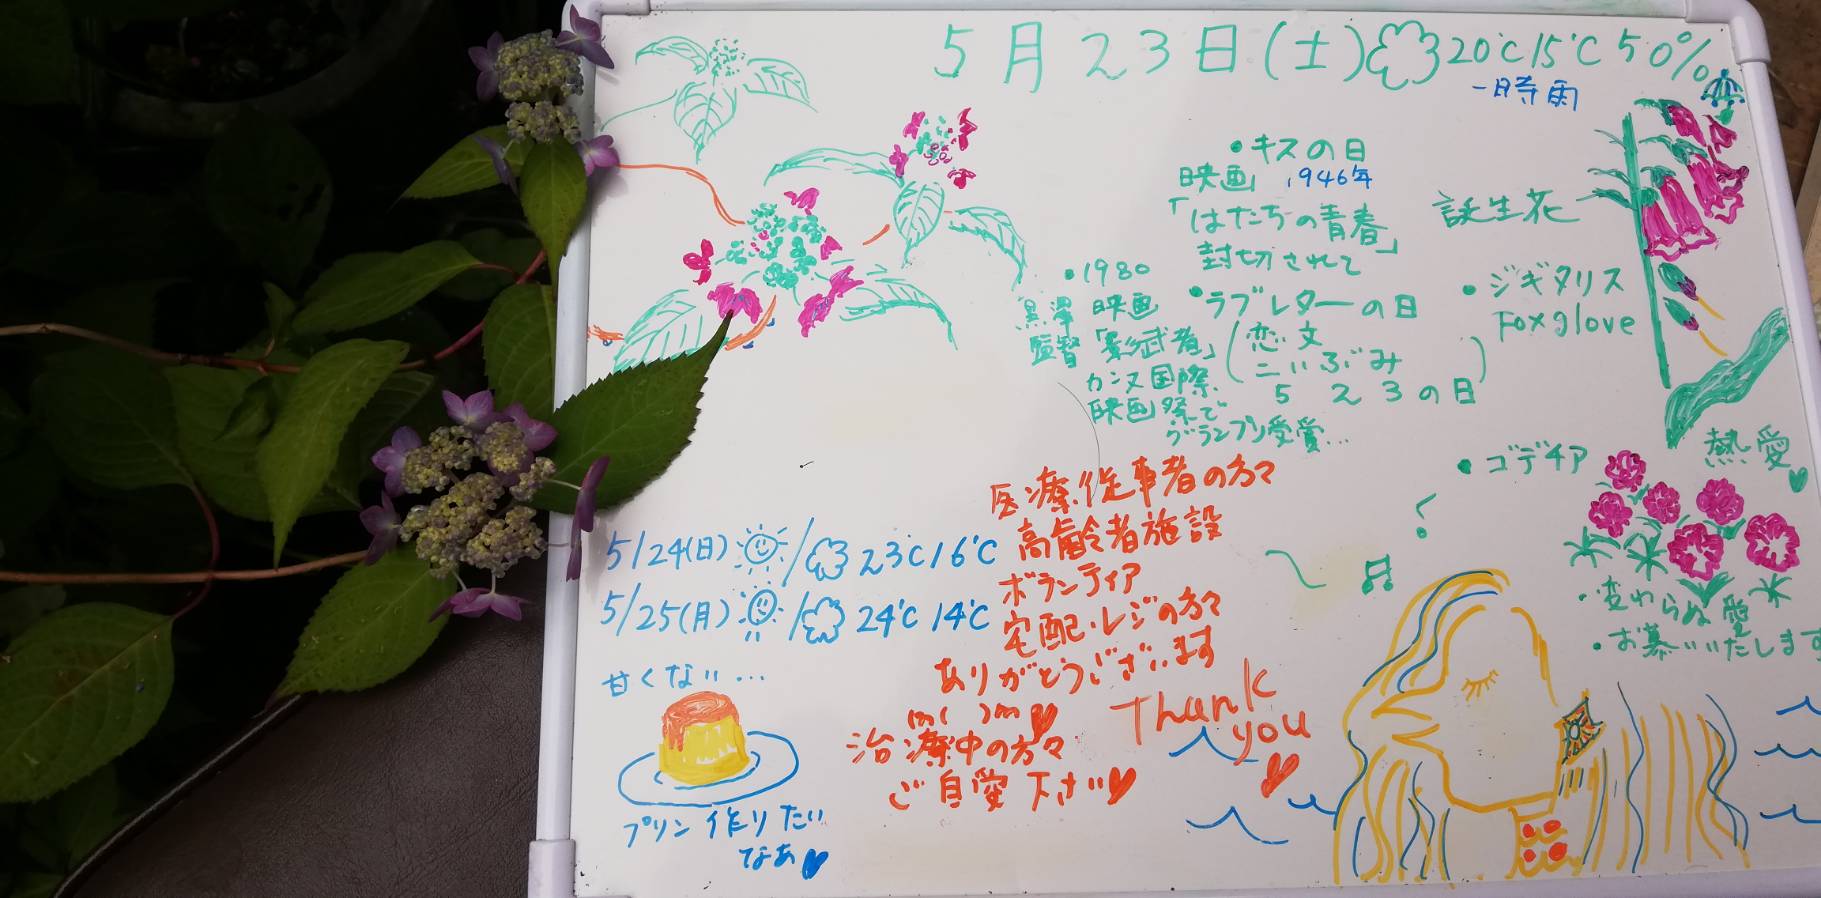 5月23日(土) 20℃ 15℃ 50%
一時雨
・キスの日
映画 1946年
「はたちの青春」
封切されて
・ラブレターの日
(恋文
こいぶみ
5 2 3の日)
・1980
黒澤監督
映画
「影武者」
カンヌ国際
映画祭で
グランプリ受賞...
誕生花
・ジギタリス
Foxglove
熱愛
・ゴデチア
・変わらぬ愛
・お慕いいたします
医療従事者の方々
高齢者施設
ボランティア
宅配・レジの方々
ありがとうございます
m( )m
Thank
you
治療中の方々
ご自愛下さい
5/24(日) / 23℃ 16℃
5/25(月) / 24℃ 14℃
甘くない...
プリン作りたい
なあ